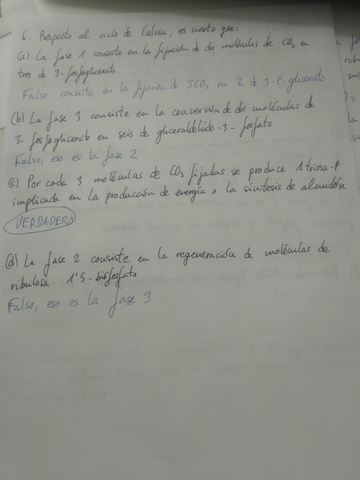 6. Respecto al ciclo de Calvin, es cierto que:
(a) La fase 1 consiste en la fijación de dos moléculas de CO2 en
tres de 3-fosfoglicerato.
Falso, consiste en la fijación de 3CO2 en 2 de 3-P-glicerato
(b) La fase 3 consiste en la conversión de dos moléculas de
3-fosfoglicerato en seis de gliceraldehído-3-fosfato
Falso, eso es la fase 2
(c) Por cada 3 moléculas de CO2 fijadas se produce 1 triosa-P
implicada en la producción de energía o la síntesis de almidón
VERDADERO
(d) La fase 2 consiste en la regeneración de moléculas de
ribulosa 1'5-bisfosfato
Falso, eso es la fase 3